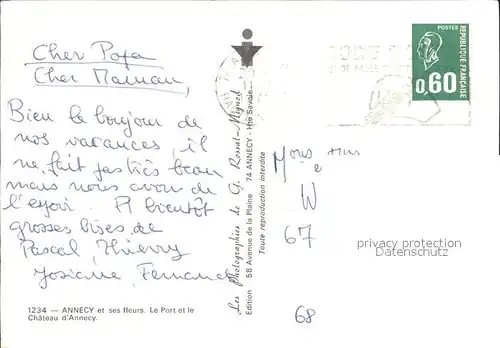 Cher Papa
Cher Maman,
Bien le bonjour de
nos vacances, il
ne fait pas très beau
mais nous avon de
l'espoir. A bientôt
grosses bises de
Pascal, Thierry
Josiane, Fernand
1234 — ANNECY et ses fleurs. Le Port et le
Château d'Annecy.
Les Photographies de G. Rossat-Mignod
Edition 58 Avenue de la Plaine 74 ANNECY - Hte Savoie
Toute reproduction interdite
POSTES
REPUBLIQUE FRANÇAISE
0,60
W
67
68
privacy protection
Datenschutz